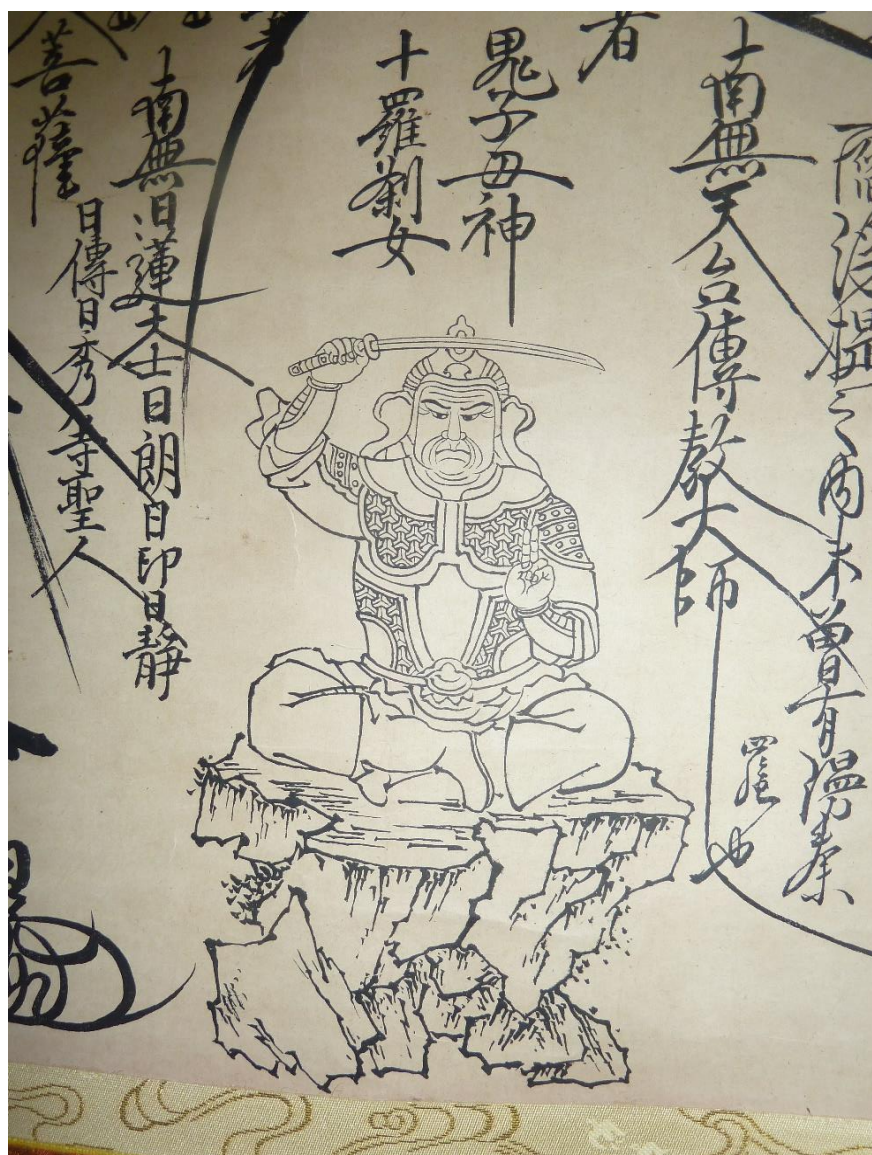 閻浮提之内未曾有漫荼
羅也
南無天台傳教大師
者
鬼子母神
十羅刹女
南無日蓮大士日朗日印日靜
日傳日秀等聖人
菩薩